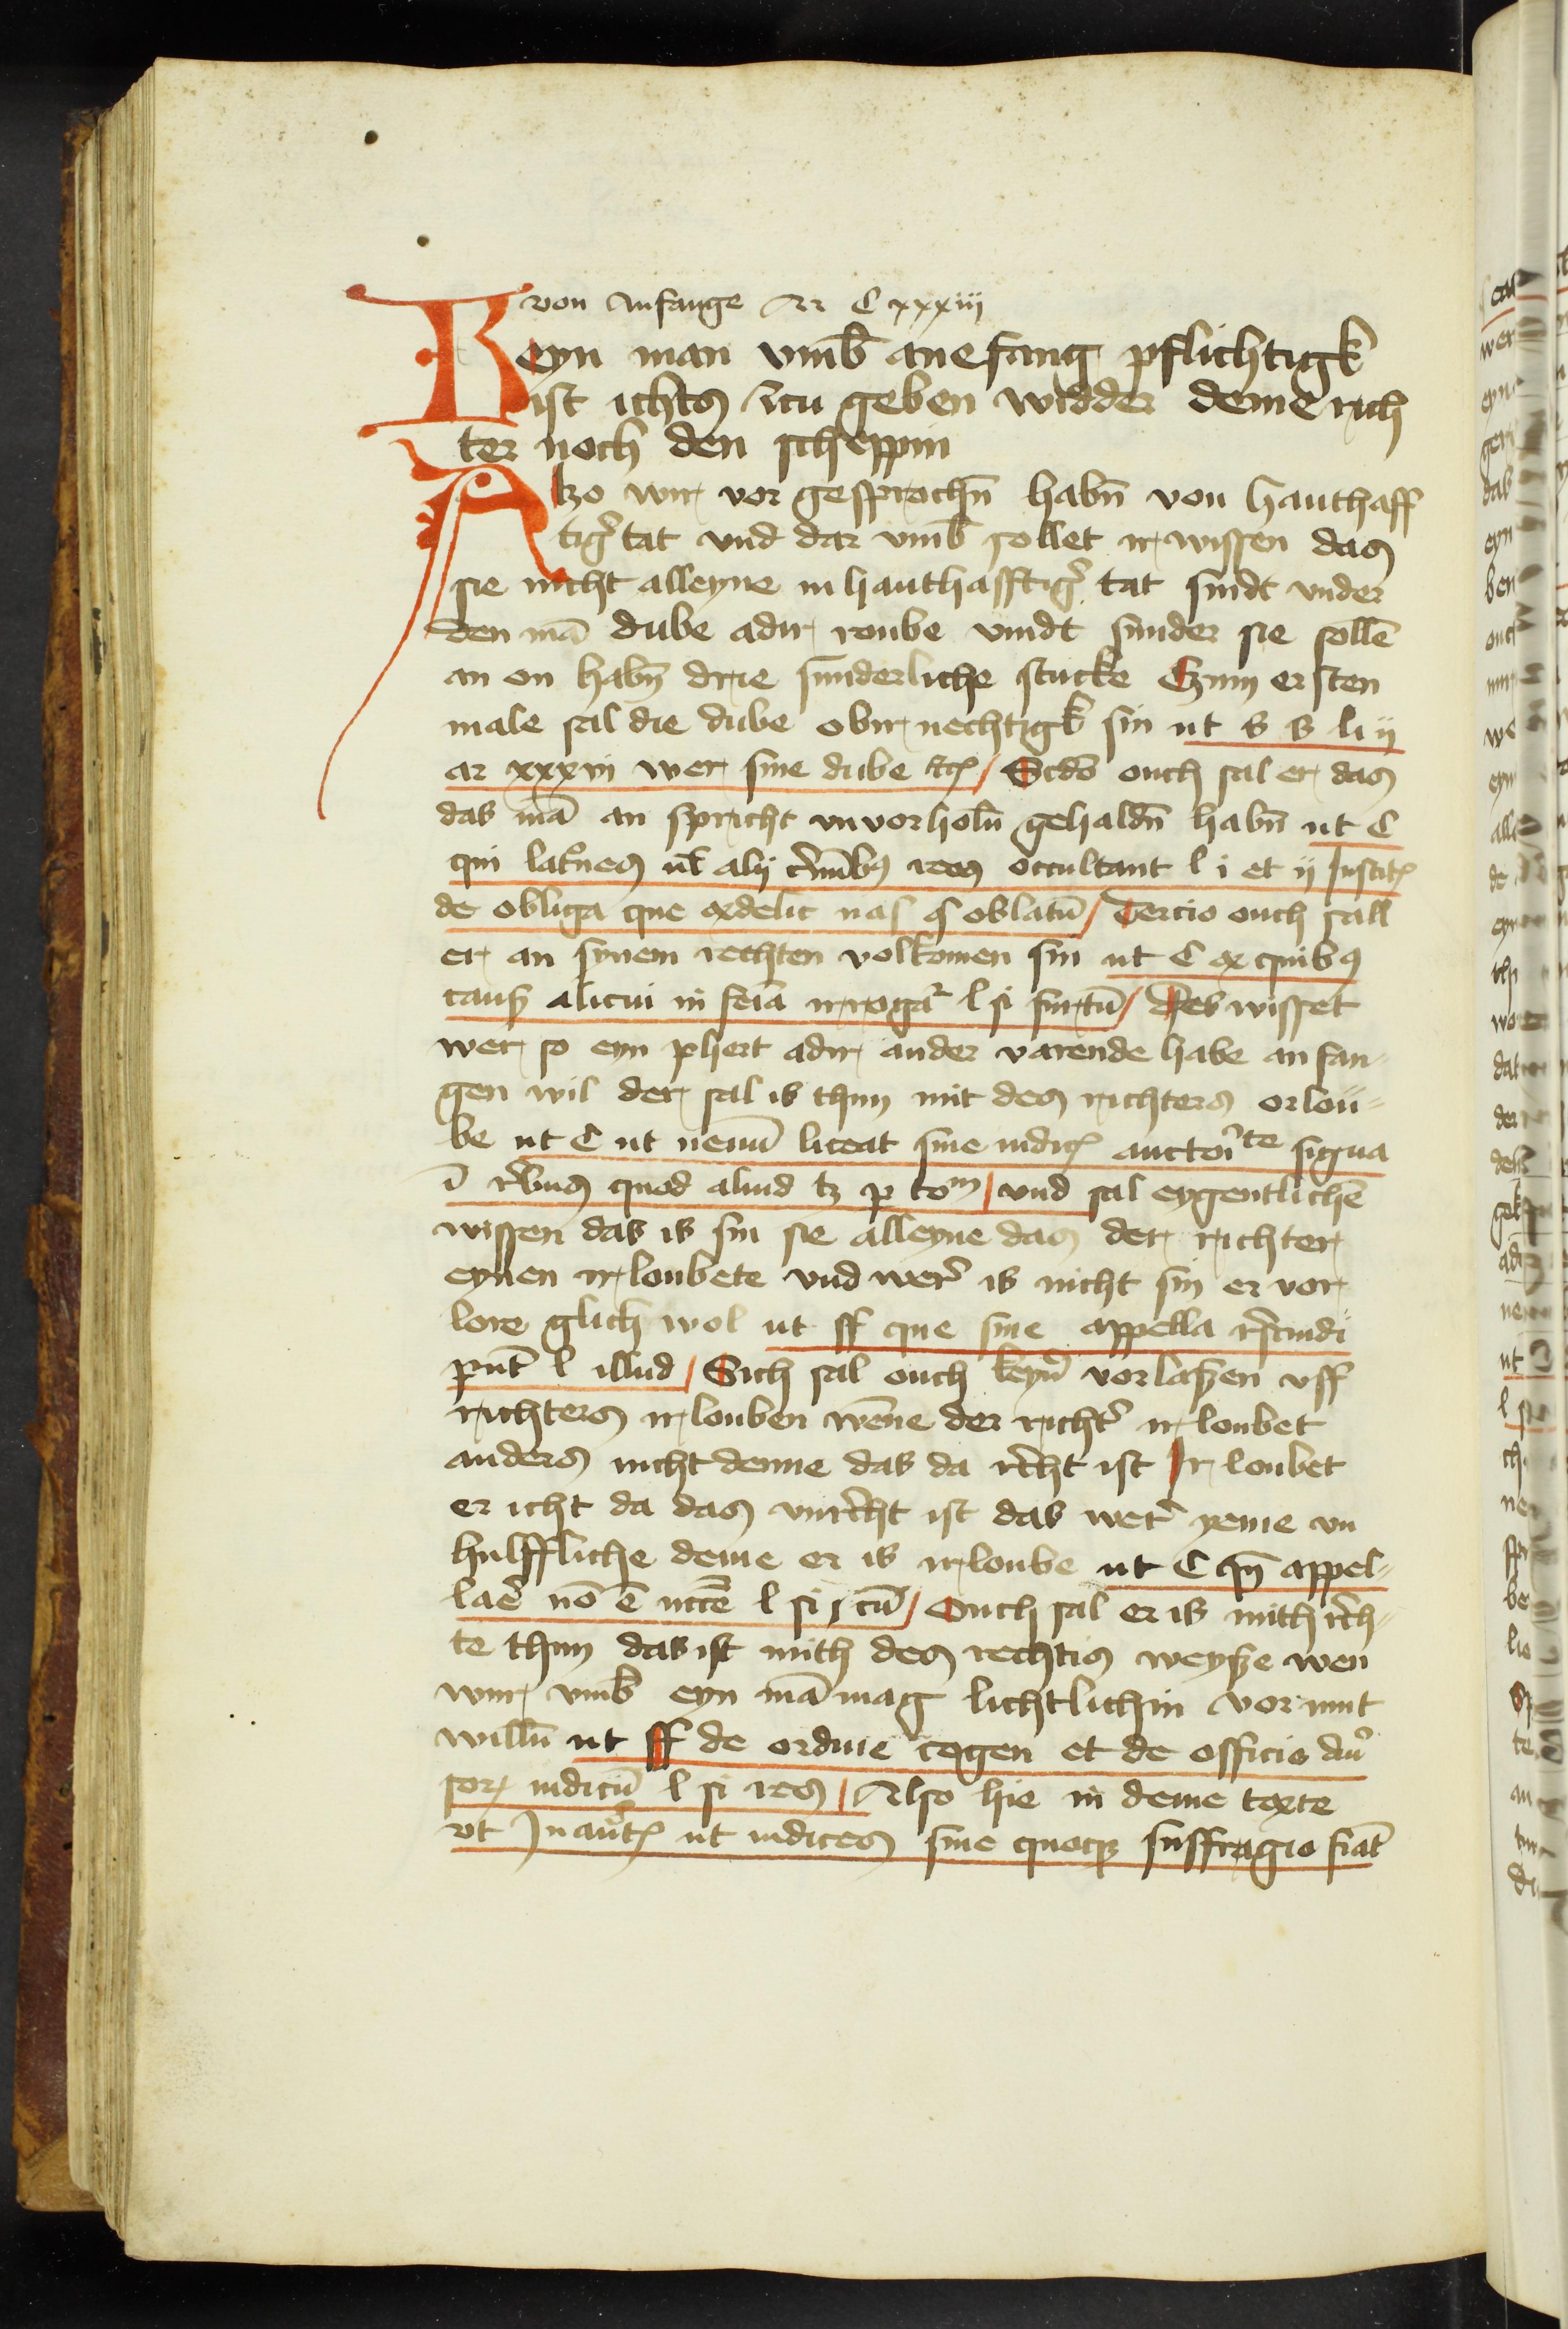 von Anfange Ar C xxxiii
Keyn man vmb̄ anefang pflichtigk
ist ichtes zcu geben widder deme rich
ter noch den scheppin
Alzo wir vor gesprochn̄ habn̄ von hanthaff
tigͤ tat vnd dar vmb̄ sollet ir wissen das
sie nicht alleyne in hanthafftigͤ tat sindt vnder
den mā dube adir roube vindt sunder sie sollē
an on habn̄ drie sunderliche stucke Czum ersten
male sal die dube obir nechtigk sin ut s s li ij
ar xxxvi wer sine dube etc / Scdo ouch sal er das
das mā an spricht vnvorholn̄ gehaldn̄ habn̄ ut C
qui latͦnes ul̄ alij cͥmībꝰ reos occultant l i et ij Instit
de obliga que ex delic nas § oblatū / Tercio ouch sall
er an synem rechten volkomen sin ut C ex quibꝰ
causꝭ alicui infamia irroga l si furtū / Des wisset
wer so eyn phert adir ander varende habe an fan-
gen wil der sal is thun mit des richters orlou-
be ut C ut nemī liceat sine iudicꝭ auctoͥte signa
ī rebus quod aliud tꝫ p tom / vnd sal eygentlichē
wissen das is sin sie alleyne das der richter
eynen ir loubete vnd werͤ is nicht sin er vor
lore glich wol ut ff que sine appella rͤscindi
punt l illud / Sich sal ouch keynͤ vorlaszen vff
richters irlouben wēne der richtͤ ir loubet
anders nicht denne das da recht ist Ir loubet
er icht da das vnrecht ist das werͤ yeme vn
hulffliche deme er is irloube ut C qn̄ appel-
lacͦ nō ē ncc̄e l si cū / Ouch sal er is mith rech-
te thun das ist mith des rechtis weysze wen
wur vmb̄ eyn mā mag lichtlichin vor mut
willn̄ ut ff de ordine cogen et de officio diuͦ
sorꝝ iudicū l si res / Also hie in deme texte
ut In autꝭ ut iudices sine quoqꝫ suffragio fiāt